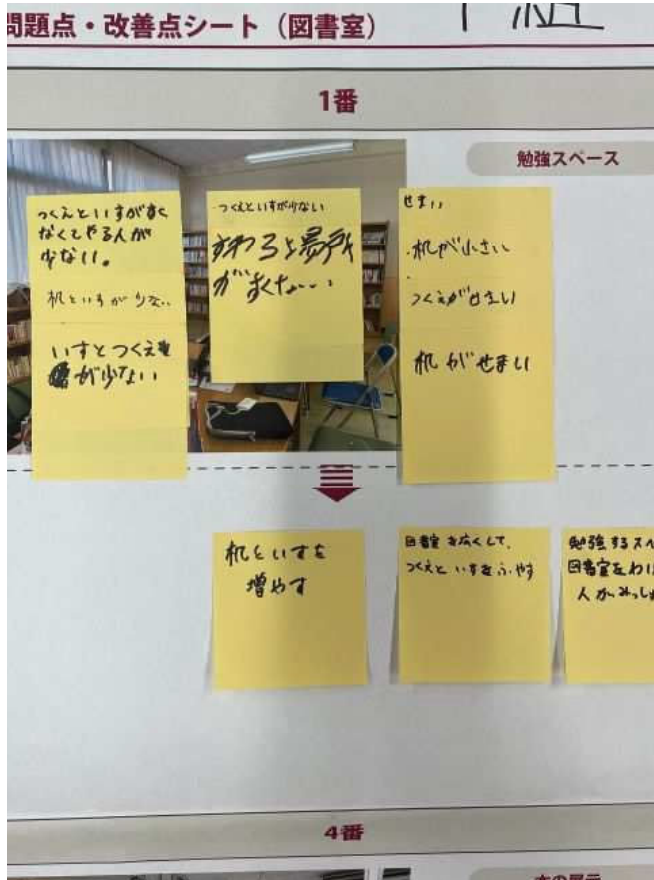 問題点・改善点シート（図書室）
組
1番
勉強スペース
つくえといすがすく
なくてやる人が
少ない。
机といすが少ない
いすとつくえ
が少ない
つくえといすが少ない
すわる場所
がすくない
せまい
・机が小さい
つくえがせまい
机がせまい
机といすを
増やす
図書室を広くして、
つくえといすをふやす
勉強するスペ
図書室をわけ
人が
4番
本の展示